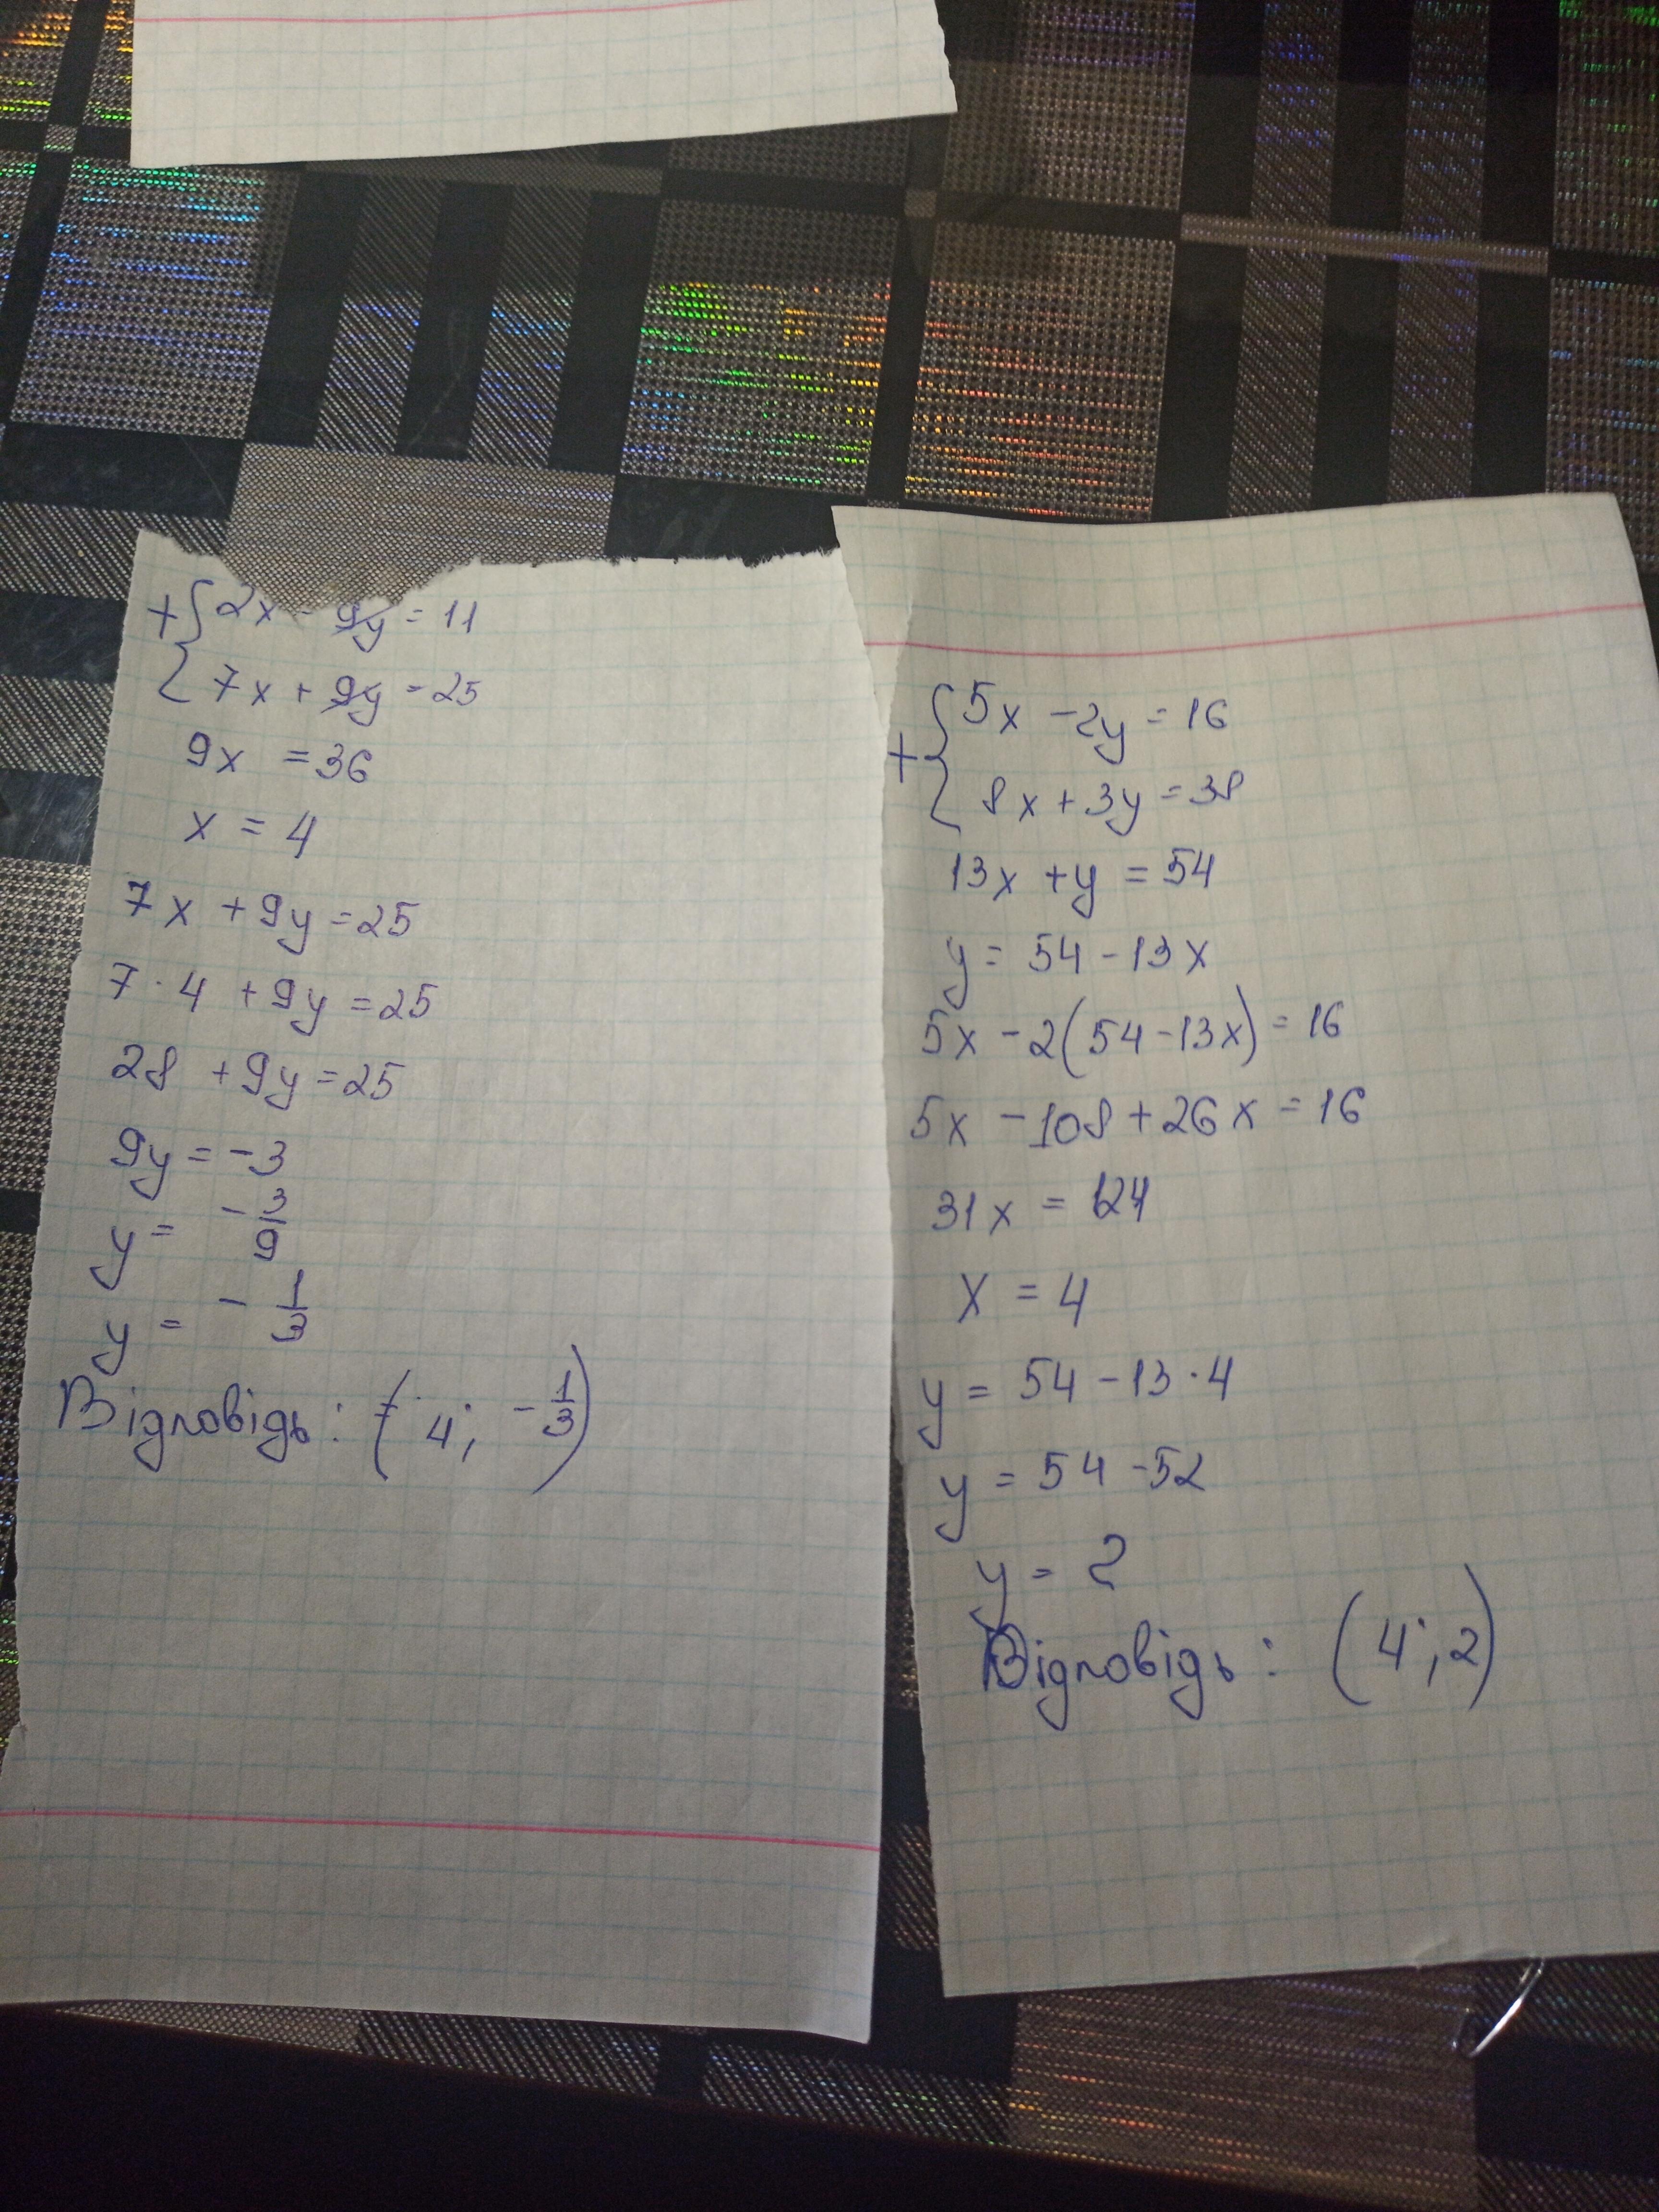 + { 2x - 9y = 11
7x + 9y = 25
9x = 36
x = 4
7x + 9y = 25
7 · 4 + 9y = 25
28 + 9y = 25
9y = -3
y = - 3/9
y = - 1/3
Відповідь: (4; - 1/3)
+ { 5x - 2y = 16
8x + 3y = 38
13x + y = 54
y = 54 - 13x
5x - 2(54 - 13x) = 16
5x - 108 + 26x = 16
31x = 124
x = 4
y = 54 - 13 · 4
y = 54 - 52
y = 2
Відповідь: (4; 2)